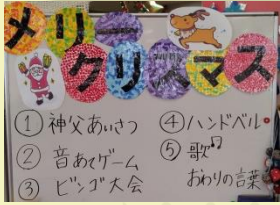 メリー
クリスマス
① 神父あいさつ
② 音あてゲーム
③ ビンゴ大会
④ ハンドベル
⑤ 歌
おわりの言葉